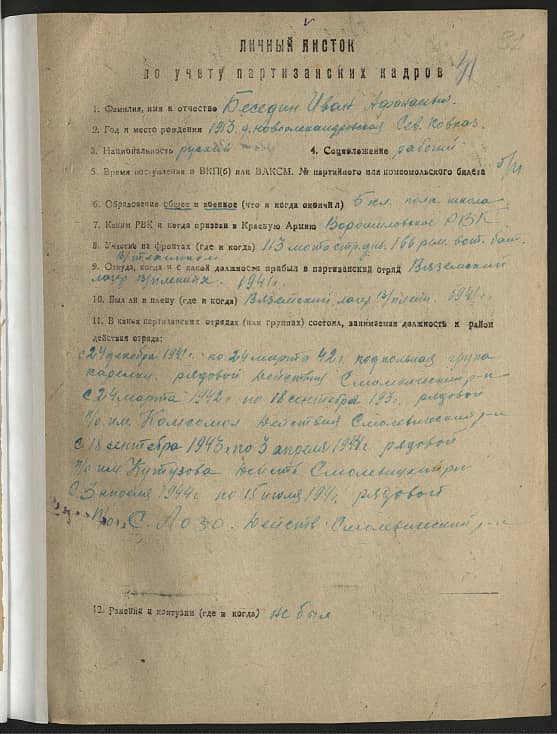 82
ЛИЧНЫЙ ЛИСТОК
по учету партизанских кадров
1. Фамилия, имя и отчество Беседин Иван
2. Год и место рождения 1913 д. новоалександровская Сев. Кавказ.
3. Национальность руский 4. Соцположение рабочий
5. Время вступления в ВКП(б) или ВЛКСМ. № партийного или комсомольского билета б/п
6. Образование общее и военное (что и когда окончил) 5 кл. полк. школа
7. Каким РВК и когда призван в Красную Армию Ворошиловское РВК
8. Участие на фронтах (где и когда) 113 мотостр. див. 166 рем. вост. бат.
9. Откуда, когда и с какой должности прибыл в партизанский отряд Вяземский
лагер в/пленных. 1941г.
10. Был ли в плену (где и когда) Вяземский лагер в/плен. 1941г.
11. В каких партизанских отрядах (или группах) состоял, занимаемая должность и район
действия отряда:
с 24 декабря 1941г. по 24 марта 42г. подпольная група
рядовой действия Смолевический р-н
с 24 марта 1942г. по 18 сентября рядовой
п/о им. Комсомол действия Смолевический р-н
с 18 сентебра 1943г. по 3 апреля 1944г. рядовой
п/о им. Кутузова действ Смолевицкий р-н
С 3 апреля 1944г. по 15 июля рядовой
п/о. С. Лазо. действ. Смолевический р-н
12. Ранения и контузии (где и когда) не был